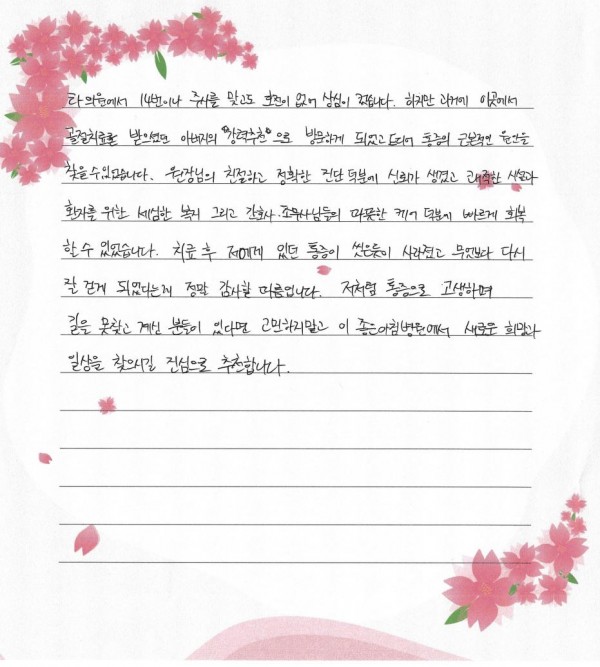 타 의원에서 14번이나 주사를 맞고도 호전이 없어 상심이 컸습니다. 하지만 과거에 이곳에서
골절치료를 받으셨던 아버지의 "강력추천"으로 방문하게 되었고 드디어 통증의 근본적인 원인을
찾을 수 있었습니다. 원장님의 친절하고 정확한 진단 덕분에 신뢰가 생겼고 쾌적한 시설과
환자를 위한 세심한 복지 그리고 간호사.조무사님들의 따뜻한 케어 덕분에 빠르게 회복
할 수 있었습니다. 치료 후 저에게 있던 통증이 씻은듯이 사라졌고 무엇보다 다시
잘 걷게 되었다는게 정말 감사할 따름입니다. 저처럼 통증으로 고생하며
길을 못찾고 계신 분들이 있다면 고민하지말고 이 좋은아침병원에서 새로운 희망과
일상을 찾으시길 진심으로 추천합니다.